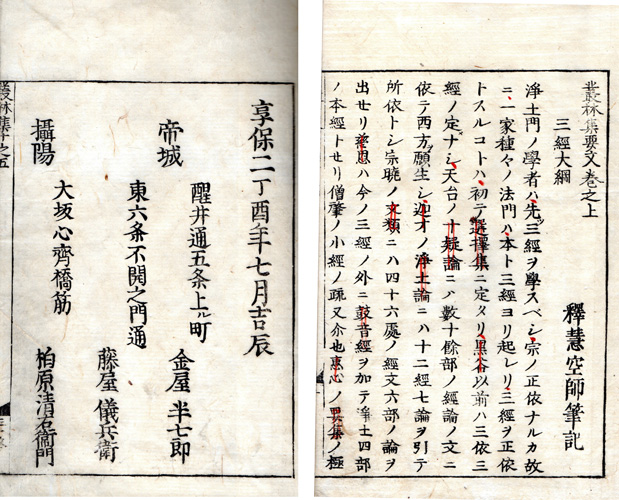 叢林集要文卷之上
三經大綱
釋慧空師筆記
淨土門ノ學者ハ先ツ三經ヲ學スベシ宗ノ正依ナルカ故
ニ一家種々ノ法門ハ本ト三經ヨリ起レリ三經ヲ正依
トスルコトハ初テ選擇集ニ定タリ黒谷以前ハ三依三
經ノ定ナシ天台ノ十疑論ニハ數十餘部ノ經論ノ文ニ
依テ西方願生シ迦才ノ淨土論ニハ十二經七論ヲ引テ
所依トシ宗曉ノ文類ニハ四十六處ノ經文六部ノ論ヲ
出セリ慈恩ハ今ノ三經ノ外ニ鼓音經ヲ加テ淨土四部
ノ本經トセリ僧肇ノ小經ノ疏又介也惠心ノ異集ノ極
享保二丁酉年七月吉辰
帝城
醒井通五条上ル町
金屋半七郎
東六条不開之門通
藤屋儀兵衛
攝陽
大坂心齊橋筋
柏原清右衛門
叢林集之五